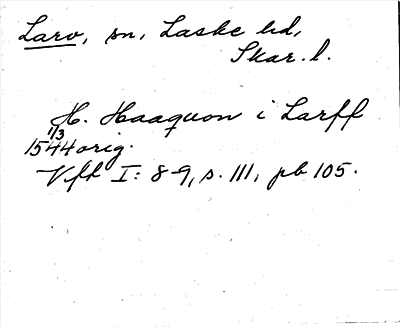 Larv, sn, Laske hd,
Skar. l.
H. Haaquon i Larff
1/3
1544 orig.
Vfk I: 8-9, s. 111, pb 105.